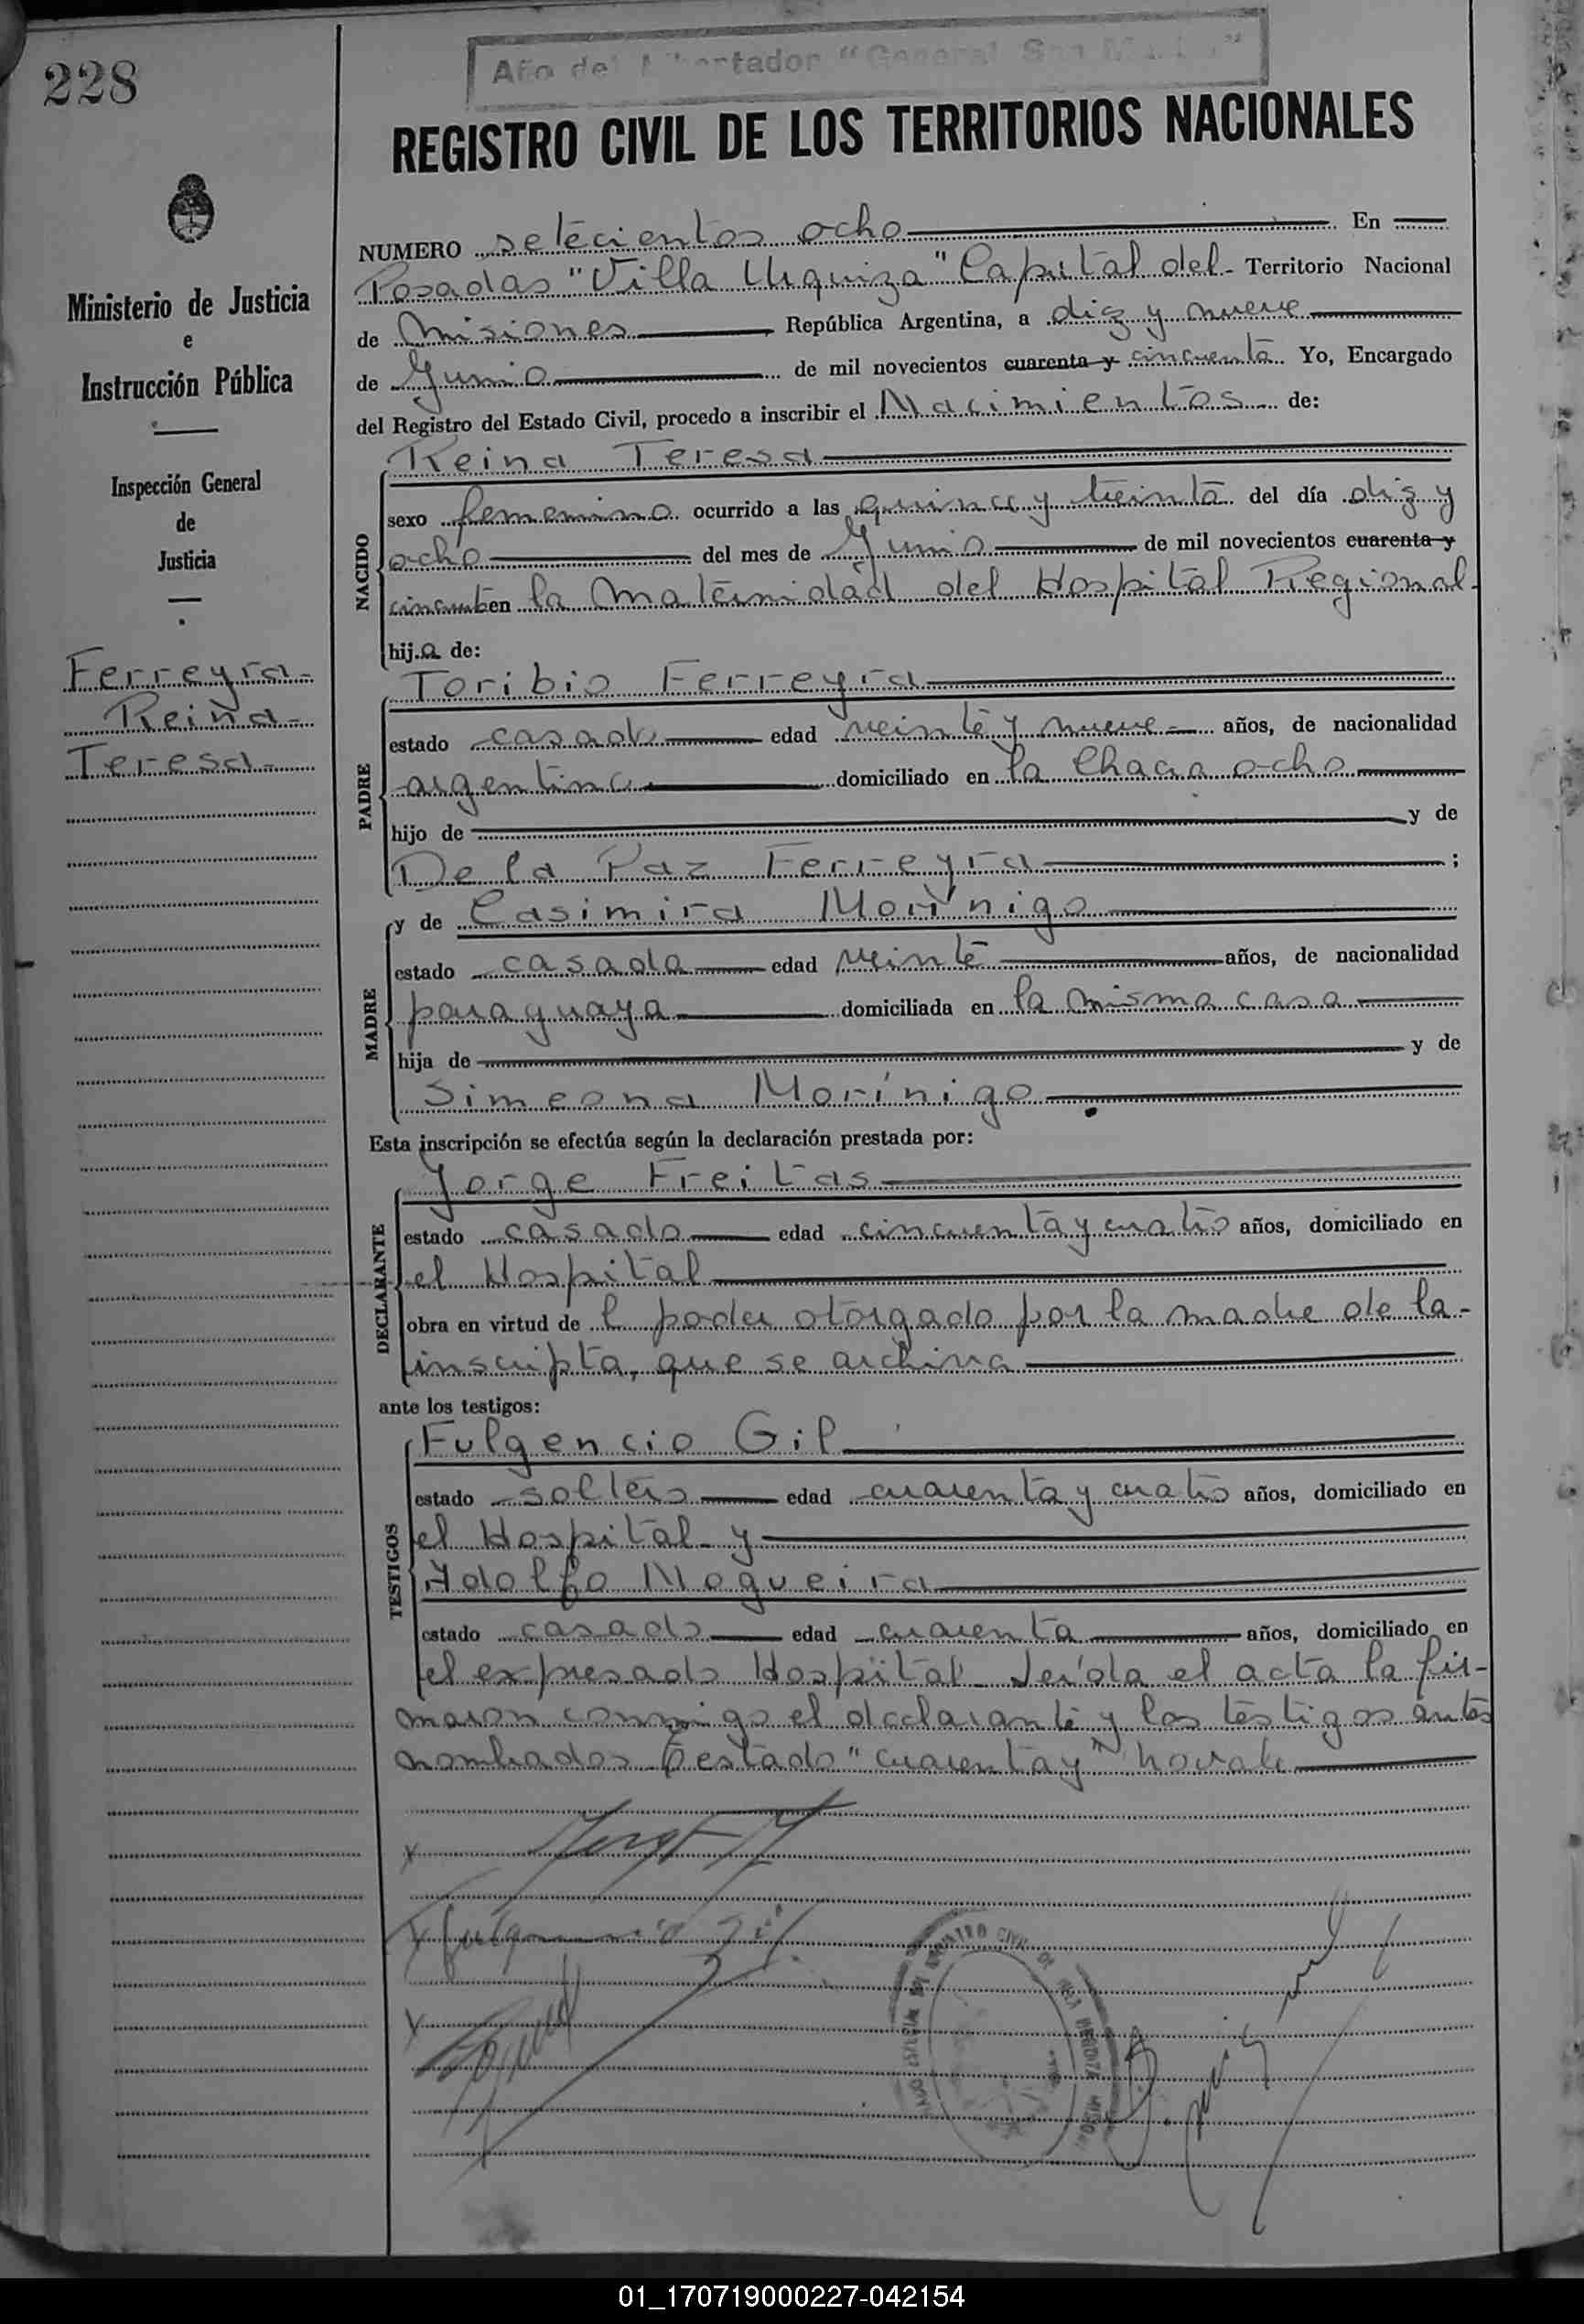 228
Año del Libertador "General San Martín"
REGISTRO CIVIL DE LOS TERRITORIOS NACIONALES
Ministerio de Justicia
e
Instrucción Pública
Inspección General
de
Justicia
Ferreyra
Reina
Teresa
NUMERO setecientos ocho En
Posadas "Villa Urquiza" Capital del Territorio Nacional
de Misiones República Argentina, a diez y nueve
de Junio de mil novecientos cuarenta y cincuenta Yo, Encargado
del Registro del Estado Civil, procedo a inscribir el Nacimientos de:
NACIDO
Reina Teresa
sexo femenino ocurrido a las quince y treinta del día diez y
ocho del mes de Junio de mil novecientos cuarenta y
cincuenta en la Maternidad del Hospital Regional
hija de:
PADRE
Toribio Ferreyra
estado casado edad veinte y nueve años, de nacionalidad
argentina domiciliado en la Chacra ocho
hijo de y de
De la Paz Ferreyra ;
MADRE
y de Casimira Morínigo
estado casada edad veinte años, de nacionalidad
paraguaya domiciliada en la misma casa
hija de y de
Simeona Morínigo
Esta inscripción se efectúa según la declaración prestada por:
DECLARANTE
Jorge Freitas
estado casado edad cincuenta y cuatro años, domiciliado en
el Hospital
obra en virtud de l poder otorgado por la madre de la
inscripta, que se archiva
ante los testigos:
TESTIGOS
Fulgencio Gil
estado soltero edad cuarenta y cuatro años, domiciliado en
el Hospital y
Adolfo Nogueira
estado casado edad cuarenta años, domiciliado en
el expresado Hospital. Leída el acta la fir-
maron conmigo el declarante y los testigos antes
nombrados. Testado "cuarenta y" no vale
Fulgencio Gil
01_170719000227-042154